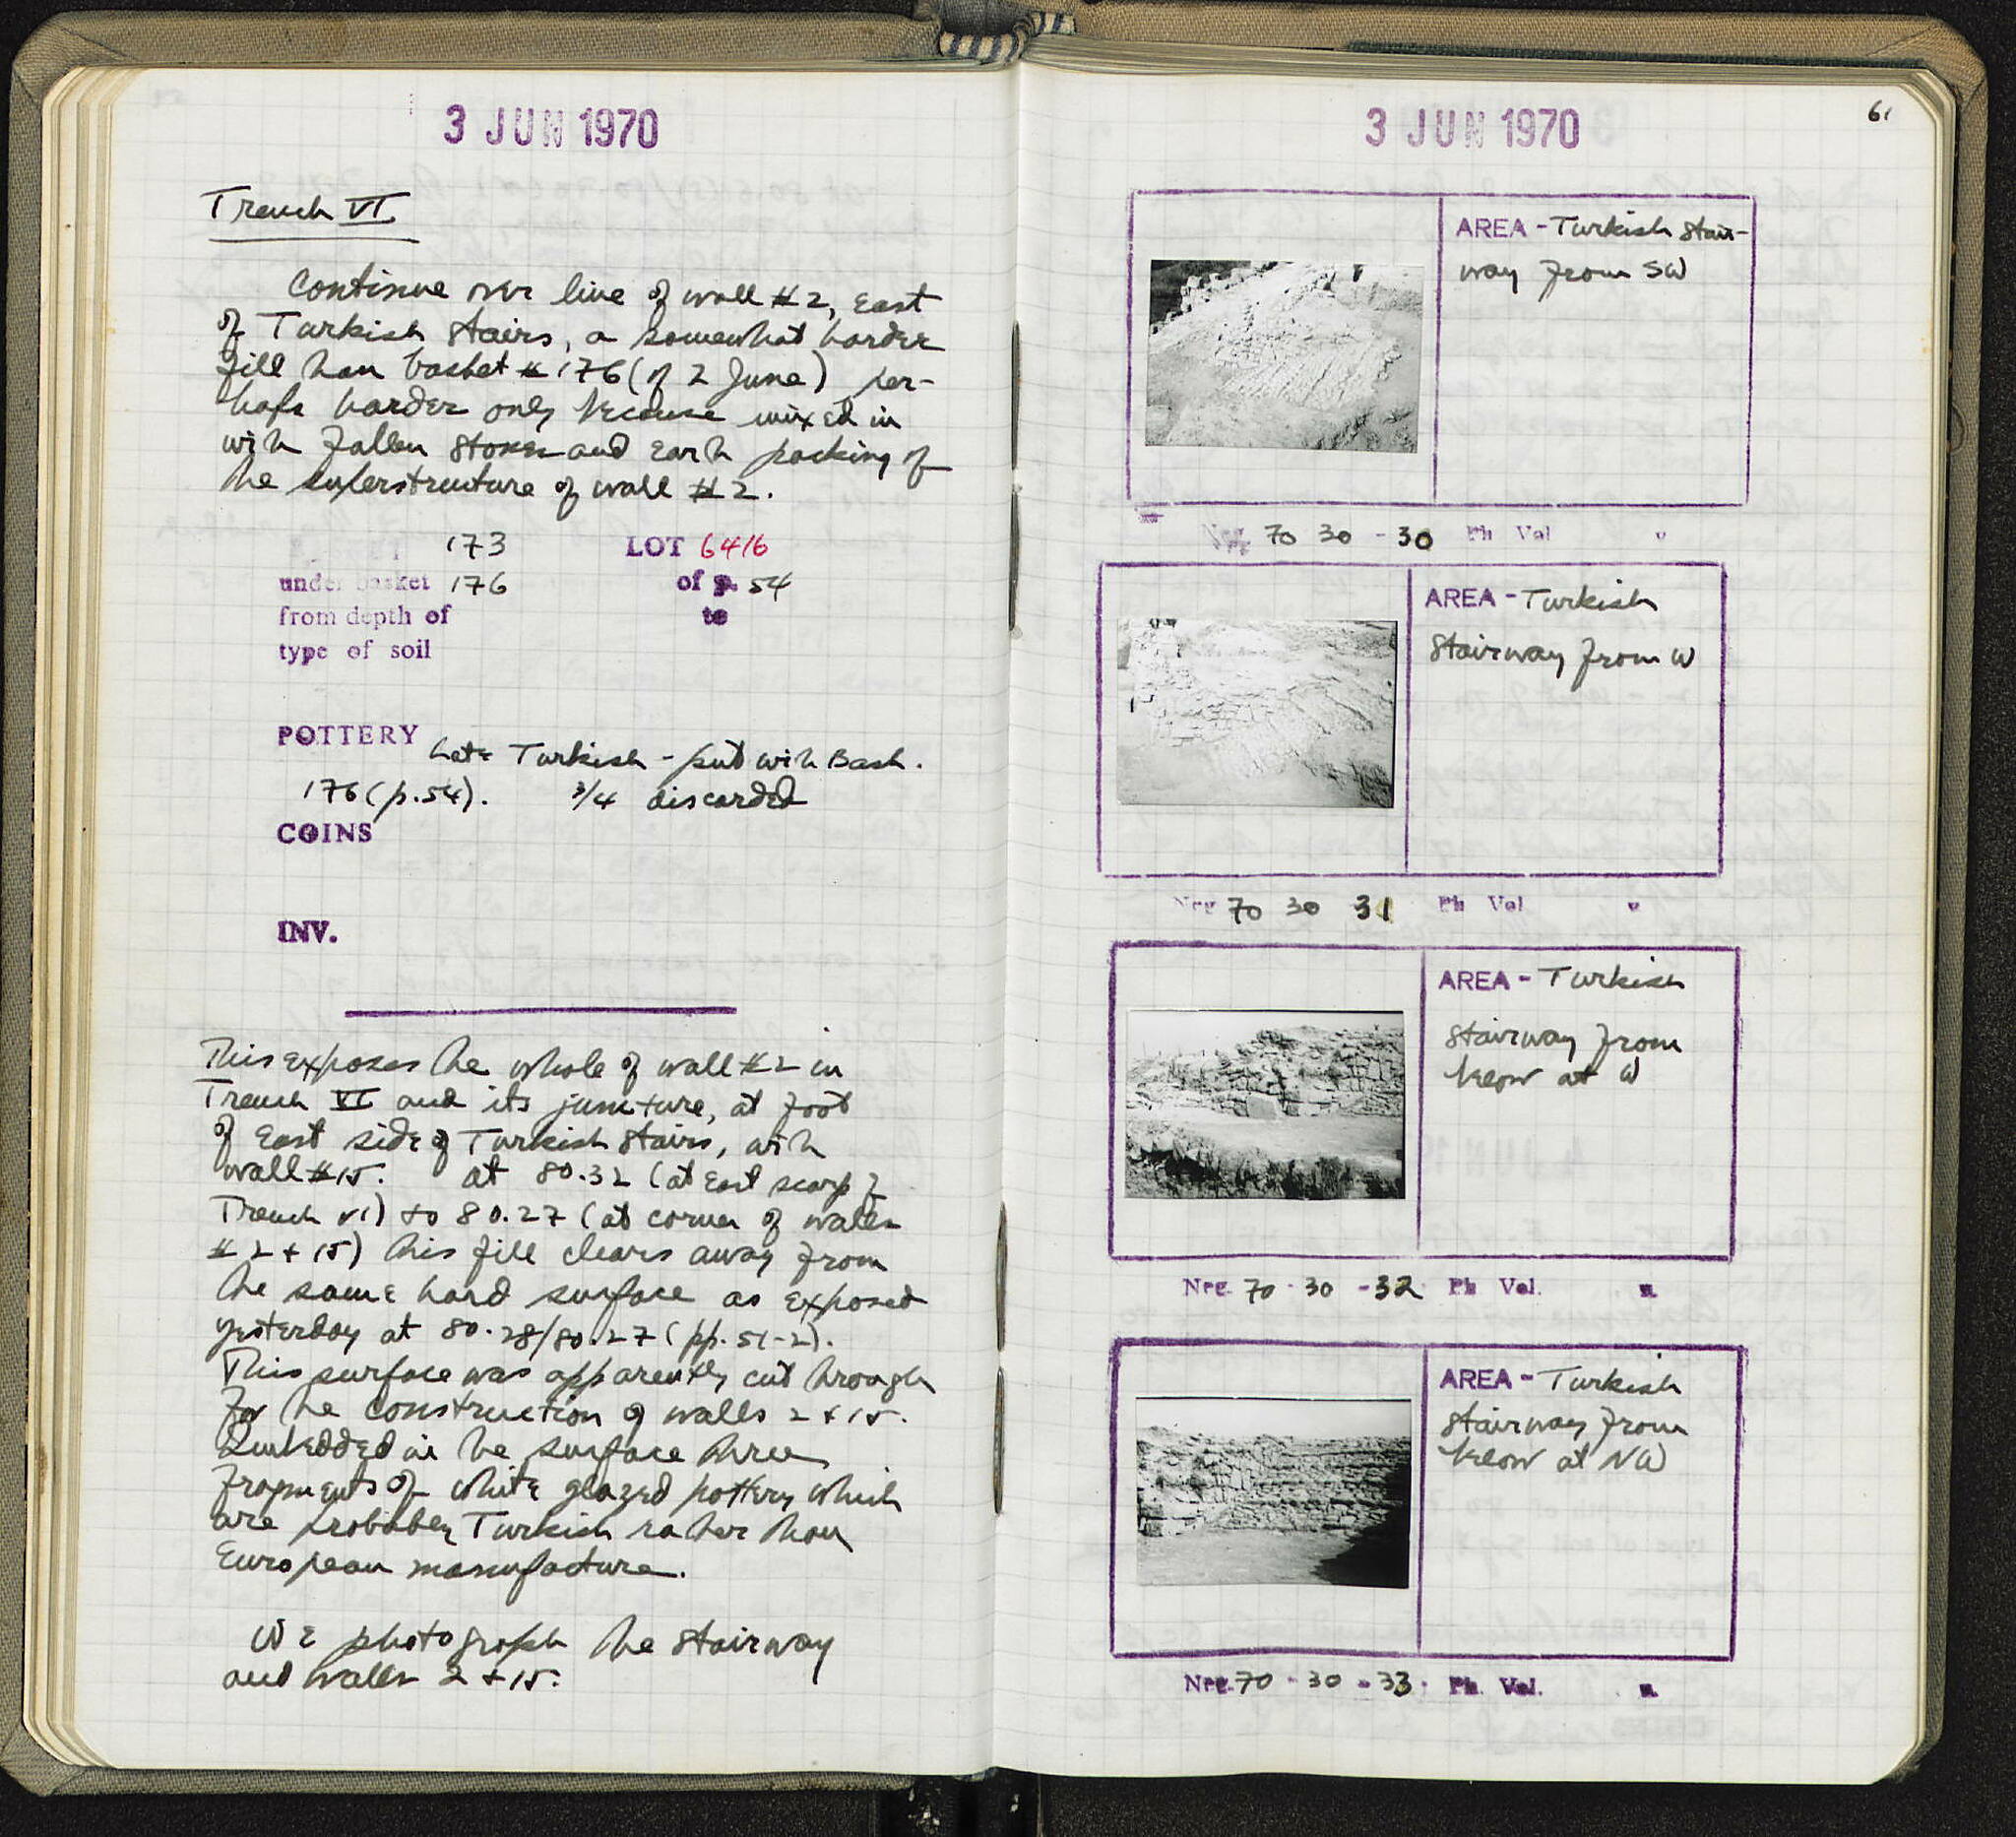 3 JUN 1970
Trench VI
Continue over line of wall #2, East
of Turkish Stairs, a somewhat harder
fill than basket #176 (of 2 June) per-
haps harder only because mixed in
with fallen stones and earth packing of
the superstructure of wall #2.
173 LOT 6416
under basket 176 of p. 54
from depth of to
type of soil
POTTERY Late Turkish - put with Bask.
176 (p.54). 3/4 discarded
COINS
INV.
This exposes the whole of wall #2 in
Trench VI and its juncture, at foot
of East side of Turkish Stairs, with
wall #15. at 80.32 (at East scarp of
Trench VI) to 80.27 (at corner of walls
#2 + 15) this fill clears away from
the same hard surface as exposed
yesterday at 80.28/80.27 (pp. 51-2).
This surface was apparently cut through
for the construction of walls 2 + 15.
Embedded in the surface three
fragments of white glazed pottery which
are probably Turkish rather than
European manufacture.
We photograph the stairway
and walls 2 + 15.
3 JUN 1970
61
AREA - Turkish stair-
way from SW
Neg. 70 30 - 30 Ph Vol
AREA - Turkish
Stairway from W
Neg 70 30 31 Ph Vol
AREA - Turkish
stairway from
below at W
Neg. 70 - 30 - 32 Ph Vol.
AREA - Turkish
stairway from
below at NW
Neg. 70 - 30 - 33 Ph. Vol.